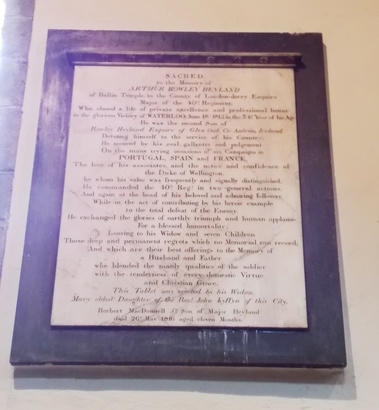 SACRED
to the Memory of
ARTHUR ROWLEY HEYLAND
of Ballin Temple, in the County of London-derry Esquire
Major of the 40th Regiment,
Who closed a life of private excellence and professional honor
in the glorious Victory of WATERLOO, June 18th 1815, in the 34th Year of his Age.
He was the second Son of
Rowley Heyland Esquire of Glen Oak Co Antrim, Ireland
Devoting himself to the service of his Country,
He secured by his zeal, gallantry and judgement
On the many trying occasions of six Campaigns in
PORTUGAL, SPAIN and FRANCE,
The love of his associates, and the notice and confidence of
the Duke of Wellington,
by whom his valor was frequently and signally distinguished.
He commanded the 40th Regt in two general actions,
And again at the head of his beloved and admiring followers,
While in the act of contributing by his heroic example
to the total defeat of the Enemy
He exchanged the glories of earthly triumph and human applause
For a blessed Immortality;
Leaving to his Widow and seven Children
Those deep and permanent regrets which no Memorial can record,
And which are their best offerings to the Memory of
a Husband and Father
who blended the manly qualities of the soldier
with the tenderness of every domestic Virtue
and Christian Grace.
This Tablet was erected by his Widow,
Mary eldest Daughter of the Revd John Kyffin of this City.
Herbert MacDonnell Son of Major Heyland
died 26th May eleven Months.